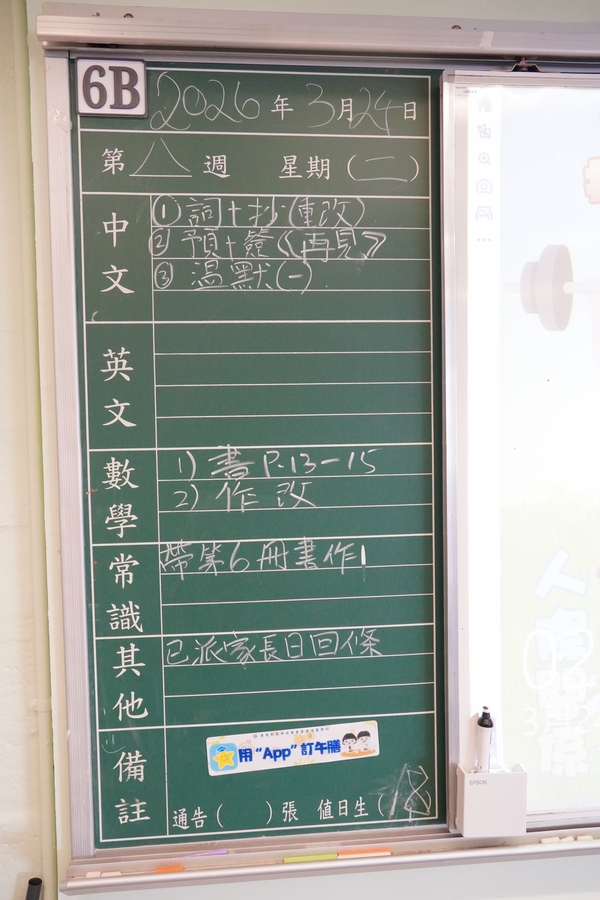 6B
2026年3月24日
第 六 週 星期(二)
中文
①詞+抄(重改)
②預+簽《再見》
③溫默(一)
英文
數學
1) 書 P.13-15
2) 作 改
常識
帶第6冊書作
其他
已派家長日回條
備註
用“App”訂午膳
通告( )張 值日生(18
EPSON